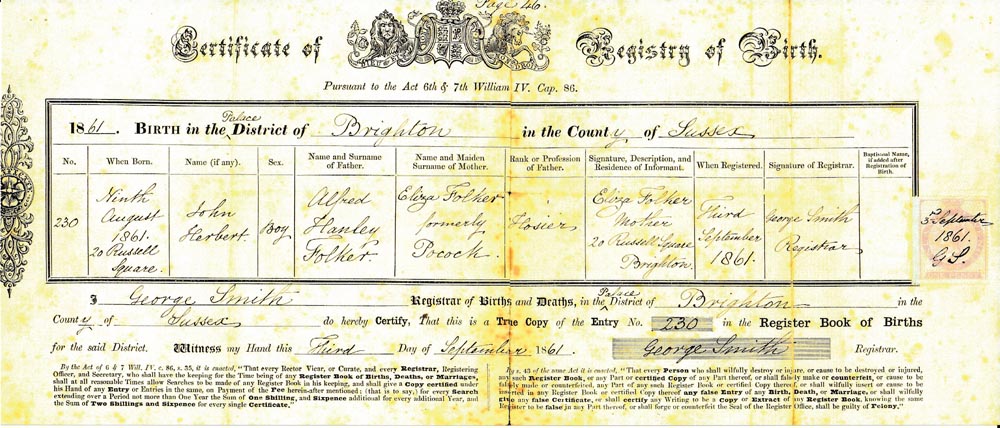 Page 46.
Certificate of Registry of Birth.
Pursuant to the Act 6th & 7th William IV. Cap. 86.
1861. BIRTH in the Palace District of Brighton in the County of Sussex
No. When Born. Name (if any). Sex. Name and Surname of Father. Name and Maiden Surname of Mother. Rank or Profession of Father. Signature, Description, and Residence of Informant. When Registered. Signature of Registrar. Baptismal Name, if added after Registration of Birth.
230
Ninth
August
1861.
20 Russell
Square.
John
Herbert.
Boy
Alfred
Hanley
Folker
Eliza Folker
formerly
Pocock.
Hosier
Eliza Folker
Mother
20 Russell Square
Brighton.
Third
September
1861.
George Smith
Registrar
3rd September
1861.
G S.
ONE PENNY
I George Smith Registrar of Births and Deaths, in the Palace District of Brighton in the
County of Sussex do hereby Certify, That this is a True Copy of the Entry No. 230 in the Register Book of Births
for the said District. Witness my Hand this Third Day of September 1861. George Smith Registrar.
By the Act of 6 & 7 Will. IV. c. 86, s. 35, it is enacted, "That every Rector Vicar, or Curate, and every Registrar, Registering
Officer, and Secretary, who shall have the keeping for the Time being of any Register Book of Births, Deaths, or Marriages,
shall at all reasonable Times allow Searches to be made of any Register Book in his keeping, and shall give a Copy certified under
his Hand of any Entry or Entries in the same, on Payment of the Fee hereinafter mentioned; (that is to say,) for every Search
extending over a Period not more than One Year the Sum of One Shilling, and Sixpence additional for every additional Year, and
the Sum of Two Shillings and Sixpence for every single Certificate."
By s. 43 of the same Act it is enacted, "That every Person who shall wilfully destroy or injure, or cause to be destroyed or injured,
any such Register Book, or any Part or certified Copy of any Part thereof, or shall falsely make or counterfeit, or cause to be
falsely made or counterfeited, any Part of any such Register Book or certified Copy thereof, or shall wilfully insert or cause to be
inserted in any Register Book or certified Copy thereof any false Entry of any Birth, Death, or Marriage, or shall wilfully
give any false Certificate, or shall certify any Writing to be a Copy or Extract of any Register Book, knowing the same
Register to be false in any Part thereof, or shall forge or counterfeit the Seal of the Register Office, shall be guilty of Felony."